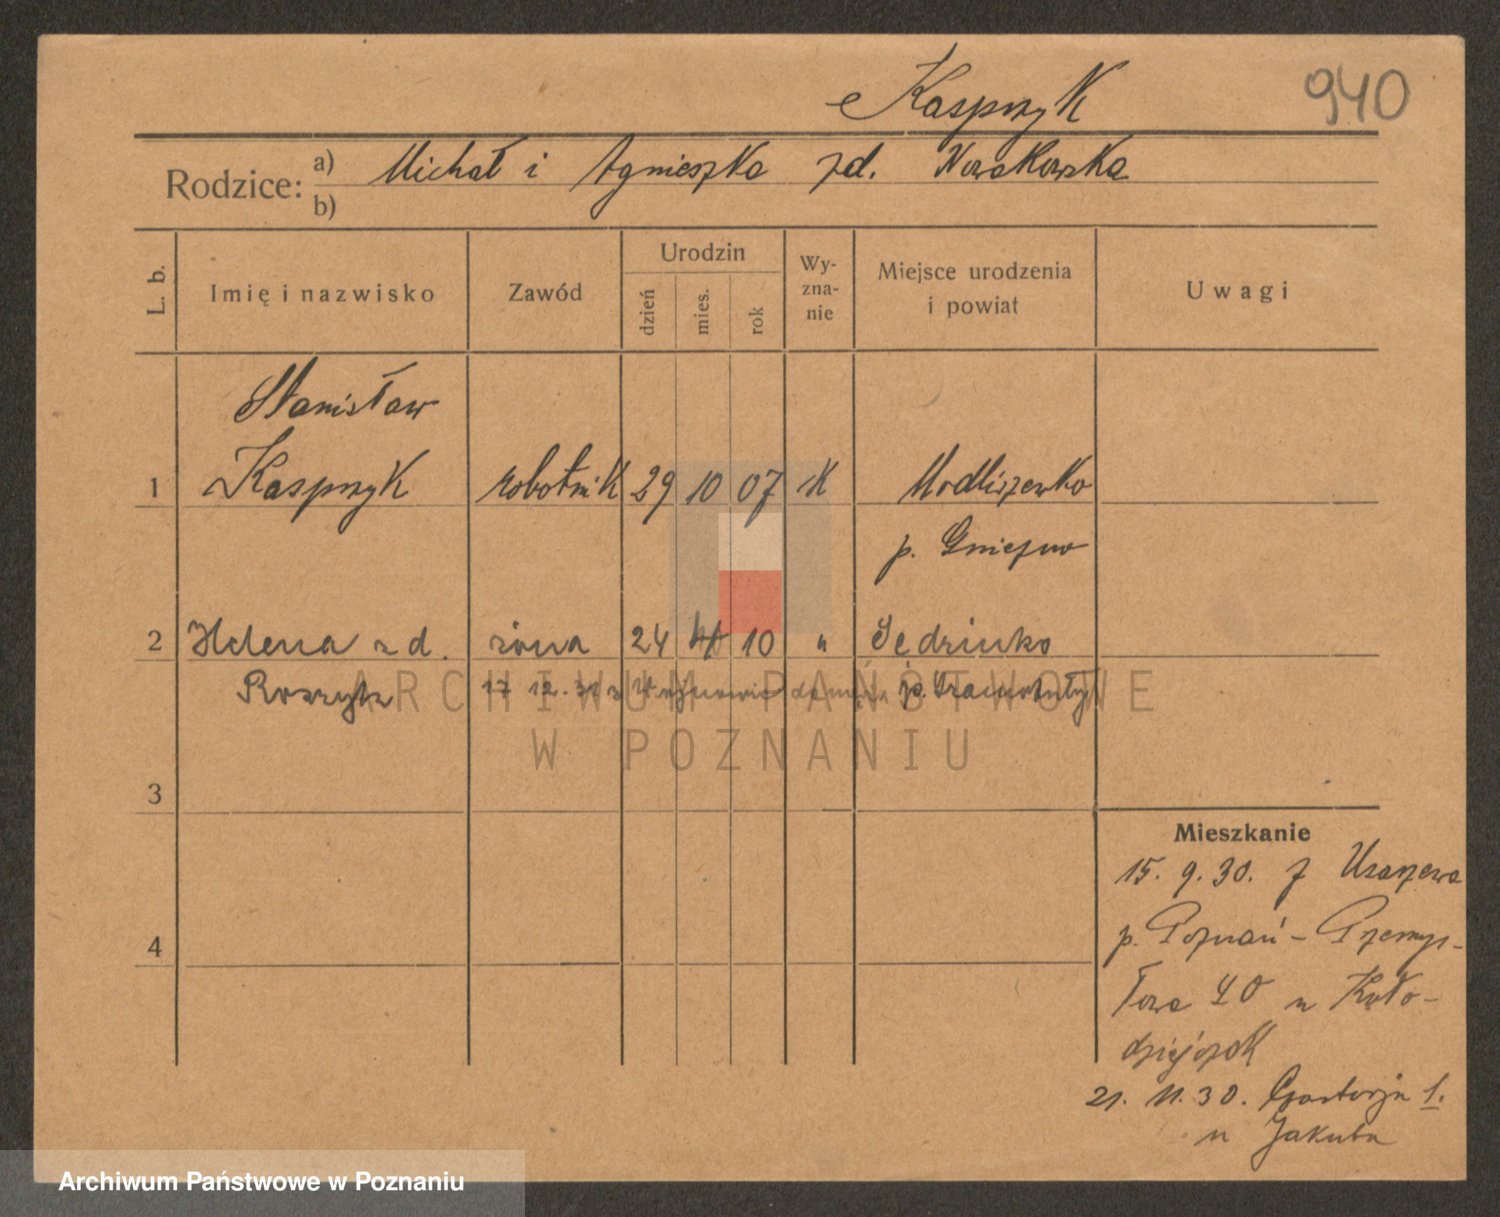 Kasprzyk 940
Rodzice: a) Michał i Agnieszka zd. Nowakowska
b)
L. b. Imię i nazwisko Zawód Urodzin dzień mies. rok Wy-zna-nie Miejsce urodzenia i powiat Uwagi
Stanisław
1 Kasprzyk robotnik 29 10 07 rK Modliszewko
p. Gniezno
2 Helena z d. żona 24 10 "
Roszyk 17 12. p.
ARCHIWUM PAŃSTWOWE
W POZNANIU
3
Mieszkanie
15. 9. 30. z Uzarzewa
p. Poznań - Przemys-
4
łowa 40 u Koło-
dziejczak
21. 11. 30. 1.
u Jakuba
Archiwum Państwowe w Poznaniu